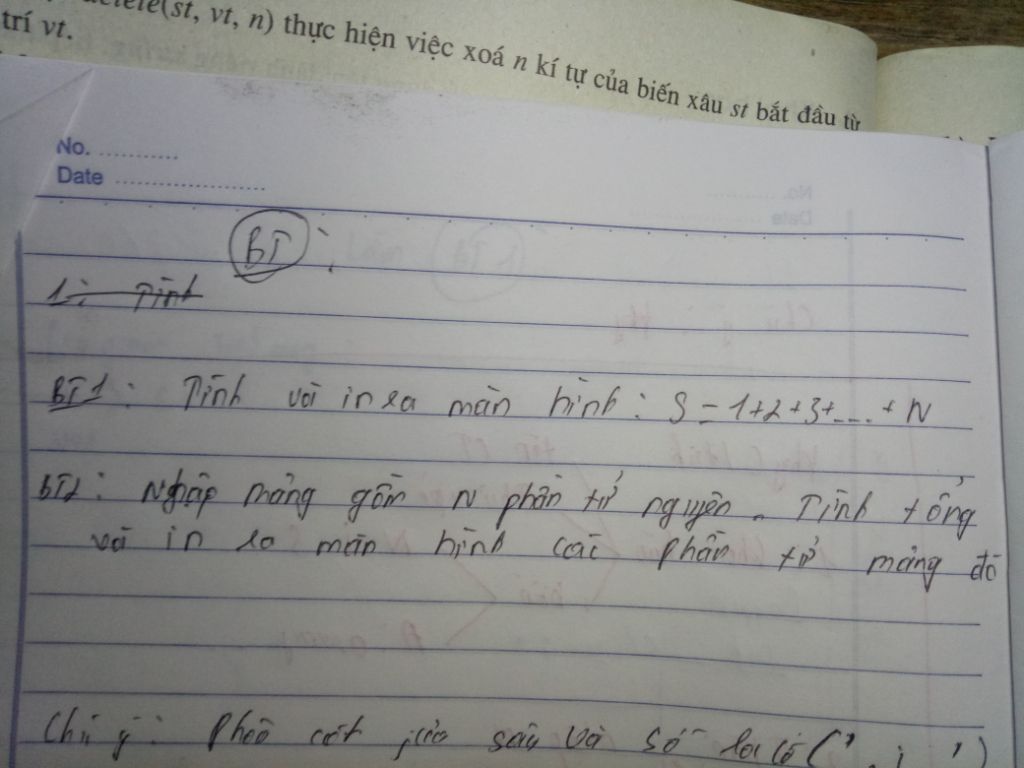 delete(st, vt, n) thực hiện việc xoá n kí tự của biến xâu st bắt đầu từ
trí vt.
No. ............
Date ......................
BT:
1: Tính
BT1: Tính và in ra màn hình: S = 1+2+3+...+ N
BT2: Nhập mảng gồm N phần tử nguyên. Tính tổng
và in ra màn hình các phần tử mảng đó
Chú ý: Phải giữa sau và số